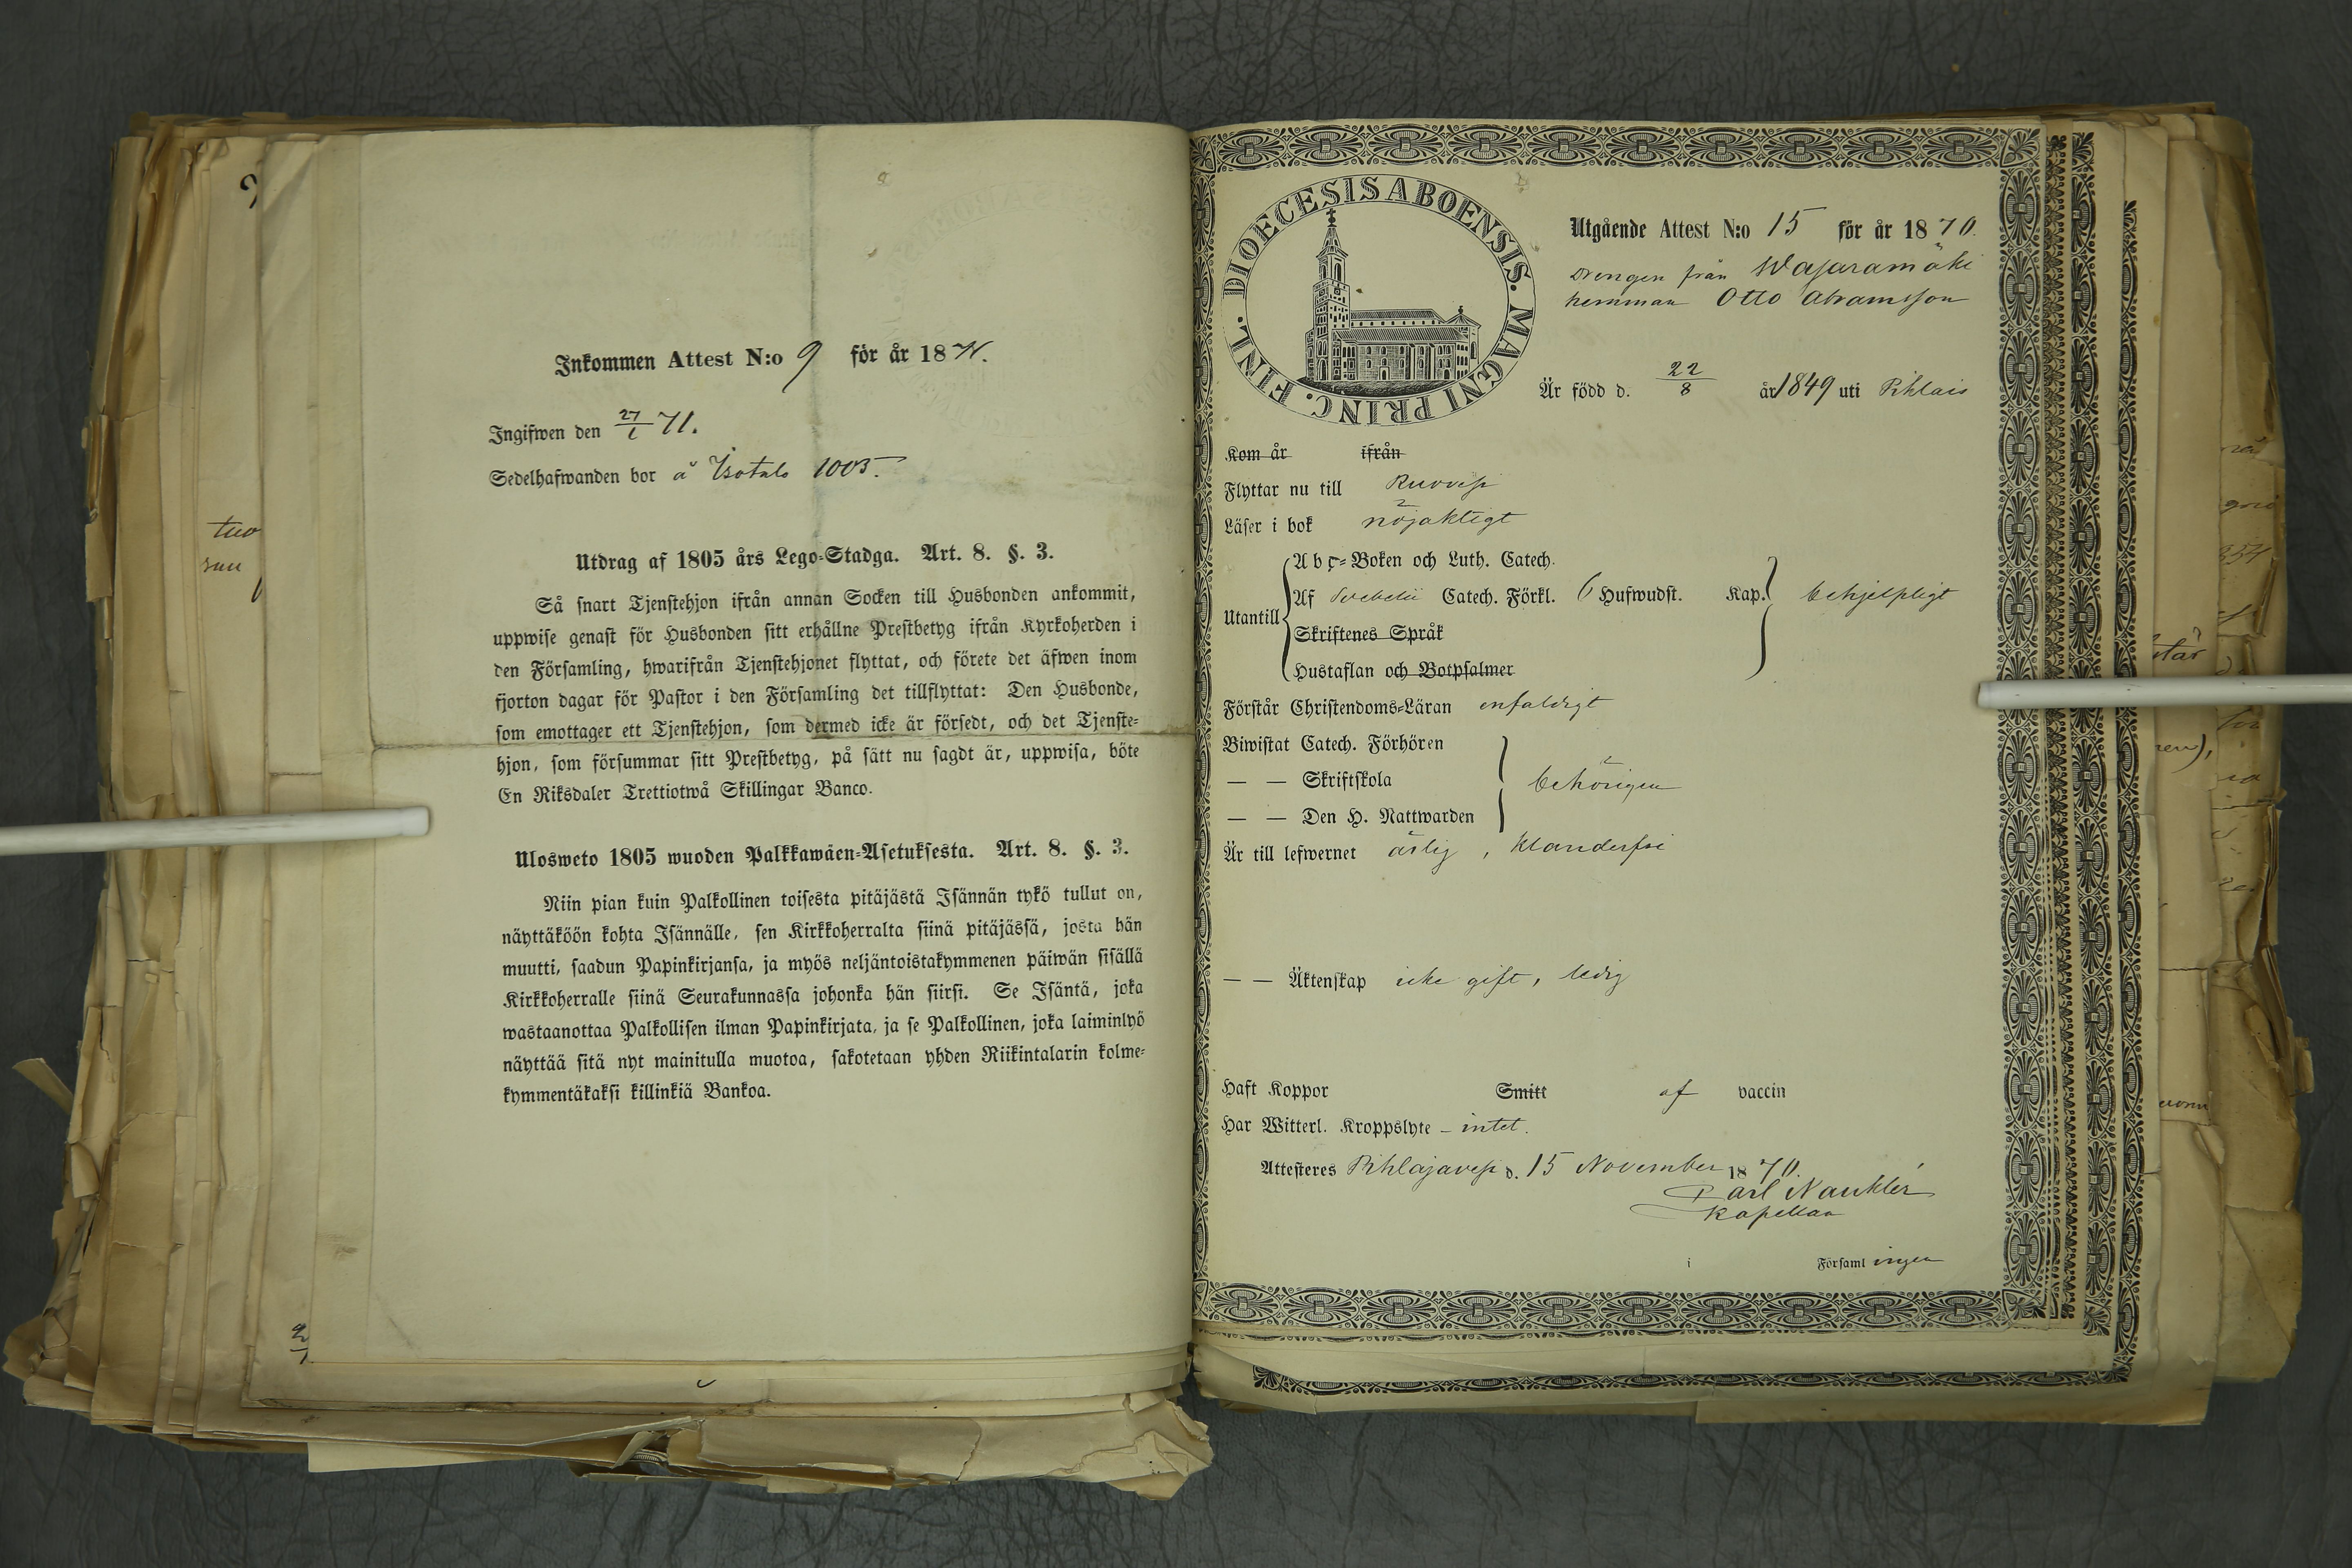 Inkommen Attest N:o 9 för år 1871.
Ingifwen den 27/1 71.
Sedelhafwanden bor å Isotalo 1005.
Utdrag af 1805 års Lego-Stadga. Art. 8. §. 3.
Så snart Tjenstehjon ifrån annan Socken till Husbonden ankommit,
uppwise genast för Husbonden sitt erhållne Prestbetyg ifrån Kyrkoherden i
den Församling, hwarifrån Tjenstehjonet flyttat, och förete det äfwen inom
fjorton dagar för Pastor i den Församling det tillflyttat: Den Husbonde,
som emottager ett Tjenstehjon, som dermed icke är försedt, och det Tjenste-
hjon, som försummar sitt Prestbetyg, på sätt nu sagdt är, uppwisa, böte
En Riksdaler Trettiotwå Skillingar Banco.
Ulosweto 1805 wuoden Palkkawäen-Asetuksesta. Art. 8. §. 3.
Niin pian kuin Palkollinen toisesta pitäjästä Isännän tykö tullut on,
näyttäköön kohta Isännälle, sen Kirkkoherralta siinä pitäjässä, josta hän
muutti, saadun Papinkirjansa, ja myös neljäntoistakymmenen päiwän sisällä
Kirkkoherralle siinä Seurakunnassa johonka hän siirsi. Se Isäntä, joka
wastaanottaa Palkollisen ilman Papinkirjata, ja se Palkollinen, joka laiminlyö
näyttää sitä nyt mainitulla muotoa, sakotetaan yhden Riikintalarin kolme-
kymmentäkaksi killinkiä Bankoa.
DIOECESIS ABOENSIS. MAGNI PRINC. FINL.
Utgående Attest N:o 15 för år 1870.
Drengen från Wajaramäki
hemman Otto Abramsson
Är född d. 22/8 år 1849 uti Pihlais
Kom år ifrån
Flyttar nu till Ruovesi
Läser i bok nöjaktigt
Utantill
A b c-Boken och Luth. Catech.
Af Svebelii Catech. Förkl. 6 Hufwudst. Kap. behjelpligt
Skriftenes Språk
Hustaflan och Botpsalmer
Förstår Christendoms-Läran enfaldigt
Biwistat Catech. Förhören
— — Skriftskola behörigen
— — Den H. Nattwarden
Är till lefwernet ärlig, klanderfri
— — Äktenskap icke gift, ledig
Haft Koppor Smitt af vaccin
Har Witterl. Kroppslyte - intet.
Attesteres Pihlajavesi d. 15 November 1870.
Carl Nauklér
Kapellan
i Församl ingen